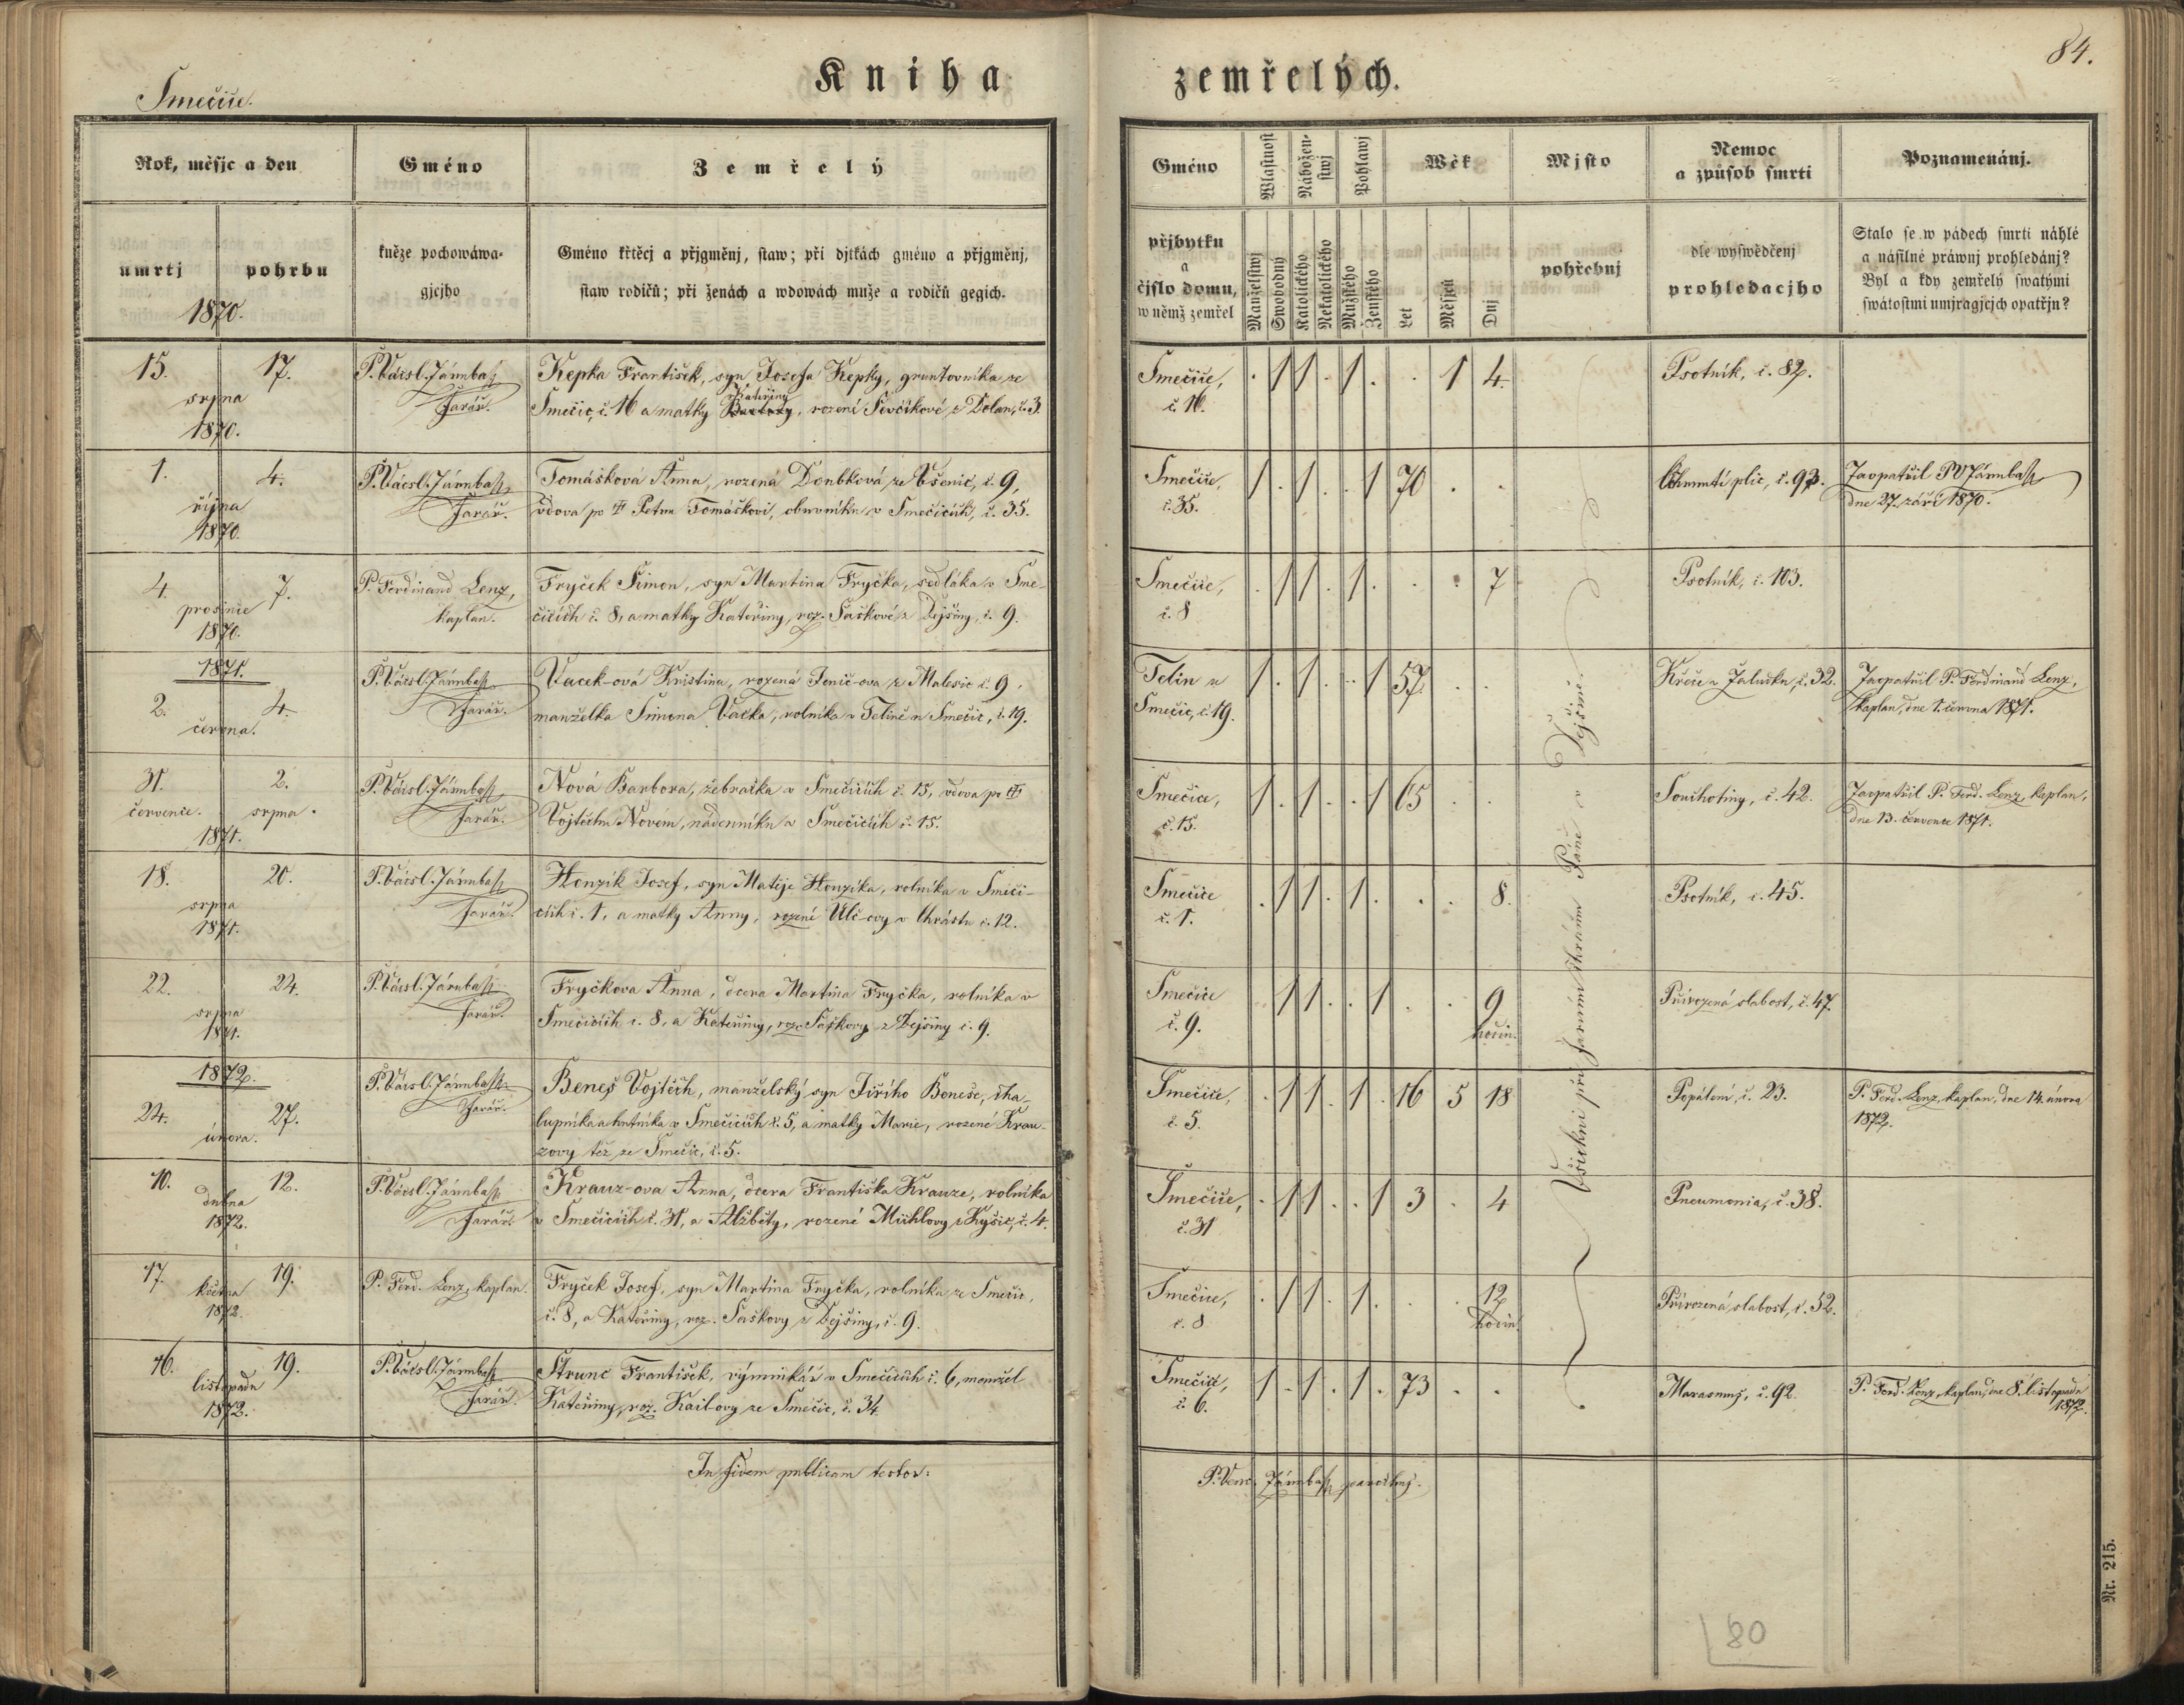 Smečice.
Kniha
Rok, měsjc a den
Gméno
Zemřelý
umrtj
pohrbu
1870.
kněze pochowáwa-
gjcjho
Gméno křtěcj a přjgměnj, staw; při djtkách gméno a přjgměnj,
staw rodičů; při ženách a wdowách muže a rodičů gegich.
15. 17.
srpna
1870.
farář.
Kepka František, syn Josefa Kepky, gruntovníka ze
Kateřiny
Smečic, č. 16 a matky Barbory, rozené Sivčikové z Dolan, č. 3.
1. 4.
října
1870.
farář.
Tomášková Anna, rozená Doubková ze Všenic, č. 9,
vdova po Petru Tomáškovi, obuvníku v Smečicích, č. 35.
4. 7.
prosince
1870.
P. Ferdinand Lenz,
kaplan.
Fryček Šimon, syn Martina Fryčka, sedláka v Sme-
čicích č. 8, a matky Kateřiny, roz. Saškové z Dejšiny, č. 9.
1871.
2. 4.
června.
farář.
Vacek-ová Kristina, rozená Jenič-ova z Malesic č. 9,
manželka Šimona Vacka, rolníka v Felině u Smečic, č. 19.
31. 2.
července. srpna.
1871.
farář.
Nová Barbora, žebračka v Smečicích č. 15, vdova po
Vojtěchu Novém, nádenníku v Smečicích č. 15.
18. 20.
srpna
1871.
farář.
Honzík Josef, syn Matěje Honzíka, rolníka v Smeči-
cích č. 1, a matky Anny, rozené Ulč-ovy v Chrástu č. 12.
22. 24.
srpna
1871.
farář.
Fryčkova Anna, dcera Martina Fryčka, rolníka v
Smečicích č. 8, a Kateřiny, roz. Saškovy z Dejšiny č. 9.
1872.
24. 27.
února.
farář.
Beneš Vojtěch, manželský syn Jiřího Beneše, cha-
lupníka a hutníka v Smečicích č. 5, a matky Marie, rozené Krau-
zovy též ze Smečic, č. 5.
10. 12.
dubna
1872.
farář.
Krauz-ova Anna, dcera Františka Krauze, rolníka
v Smečicích č. 31, a Alžběty, rozené Mühlovy z Kyšic, č. 4.
17. 19.
května
1872.
P. Ferd. Lenz, kaplan.
Fryček Josef, syn Martina Fryčka, rolníka ze Smečic,
č. 8, a Kateřiny, roz. Saškovy z Dejšiny, č. 9.
16. 19.
listopadu
1872.
farář.
Strunc František, výminkář v Smečicích č. 6, manžel
Kateřiny, roz. Kailovy ze Smečic, č. 34.
In fidem publicam testor:
84.
zemřelých.
Gméno
Wlastnost
Nábožen-
stwj
Pohlawj
Wěk
Mjsto
Nemoc
a způsob smrti
Poznamenánj.
přjbytku
a
čjslo domu,
w němž zemřel
Manželstwj
Swobodný
Katolického
Nekatolického
Mužského
Ženského
Let
Měsjců
Dnj
pohřebnj
dle wyswědčenj
prohledacjho
Stalo se w pádech smrti náhlé
a násilné práwnj prohledánj?
Byl a kdy zemřelý swatými
swátostmi umjragjcjch opatřjn?
Smečice,
č. 16.
. 1 1 . 1 . . 1 4.
Psotník, č. 82.
Smečice,
č. 35.
1 . 1 . . 1 70 . .
Ochrnutí plic, č. 93.
Zaopatřil
dne 27. září 1870.
Smečice,
č. 8
. 1 1 . 1 . . . 7
Psotník, č. 103.
Felin u
Smečic, č. 19.
1 . 1 . . 1 57 . .
Křeče v žaludku, č. 32.
Zaopatřil P. Ferdinand Lenz,
kaplan, dne 1. června 1871.
Smečice,
č. 15.
1 . 1 . . 1 65 . .
Souchotiny, č. 42.
Zaopatřil P. Ferd. Lenz, kaplan,
dne 13. července 1871.
Smečice
č. 1.
. 1 1 . 1 . . . 8.
Psotník, č. 45.
Smečice
č. 9.
. 1 1 . . 1 . . 9
hodin.
Přirozená slabost, č. 47.
Smečice,
č. 5.
. 1 1 . 1 . 16 5 18
Popálení, č. 23.
P. Ferd. Lenz, kaplan, dne 14. února
1872.
Smečice,
č. 31
. 1 1 . . 1 3 . 4
Pneumonia, č. 38.
Smečice,
č. 8
. 1 1 . 1 . . . 12
hodin.
Přirozená slabost, č. 52.
Smečice,
č. 6.
1 . 1 . 1 . 73 . .
Marasmus, č. 92.
P. Ferd. Lenz, kaplan, dne 8. listopadu
1872.
Všickni při farním chrámu Páně v Dejšině.
parochus.
80
Nr. 215.